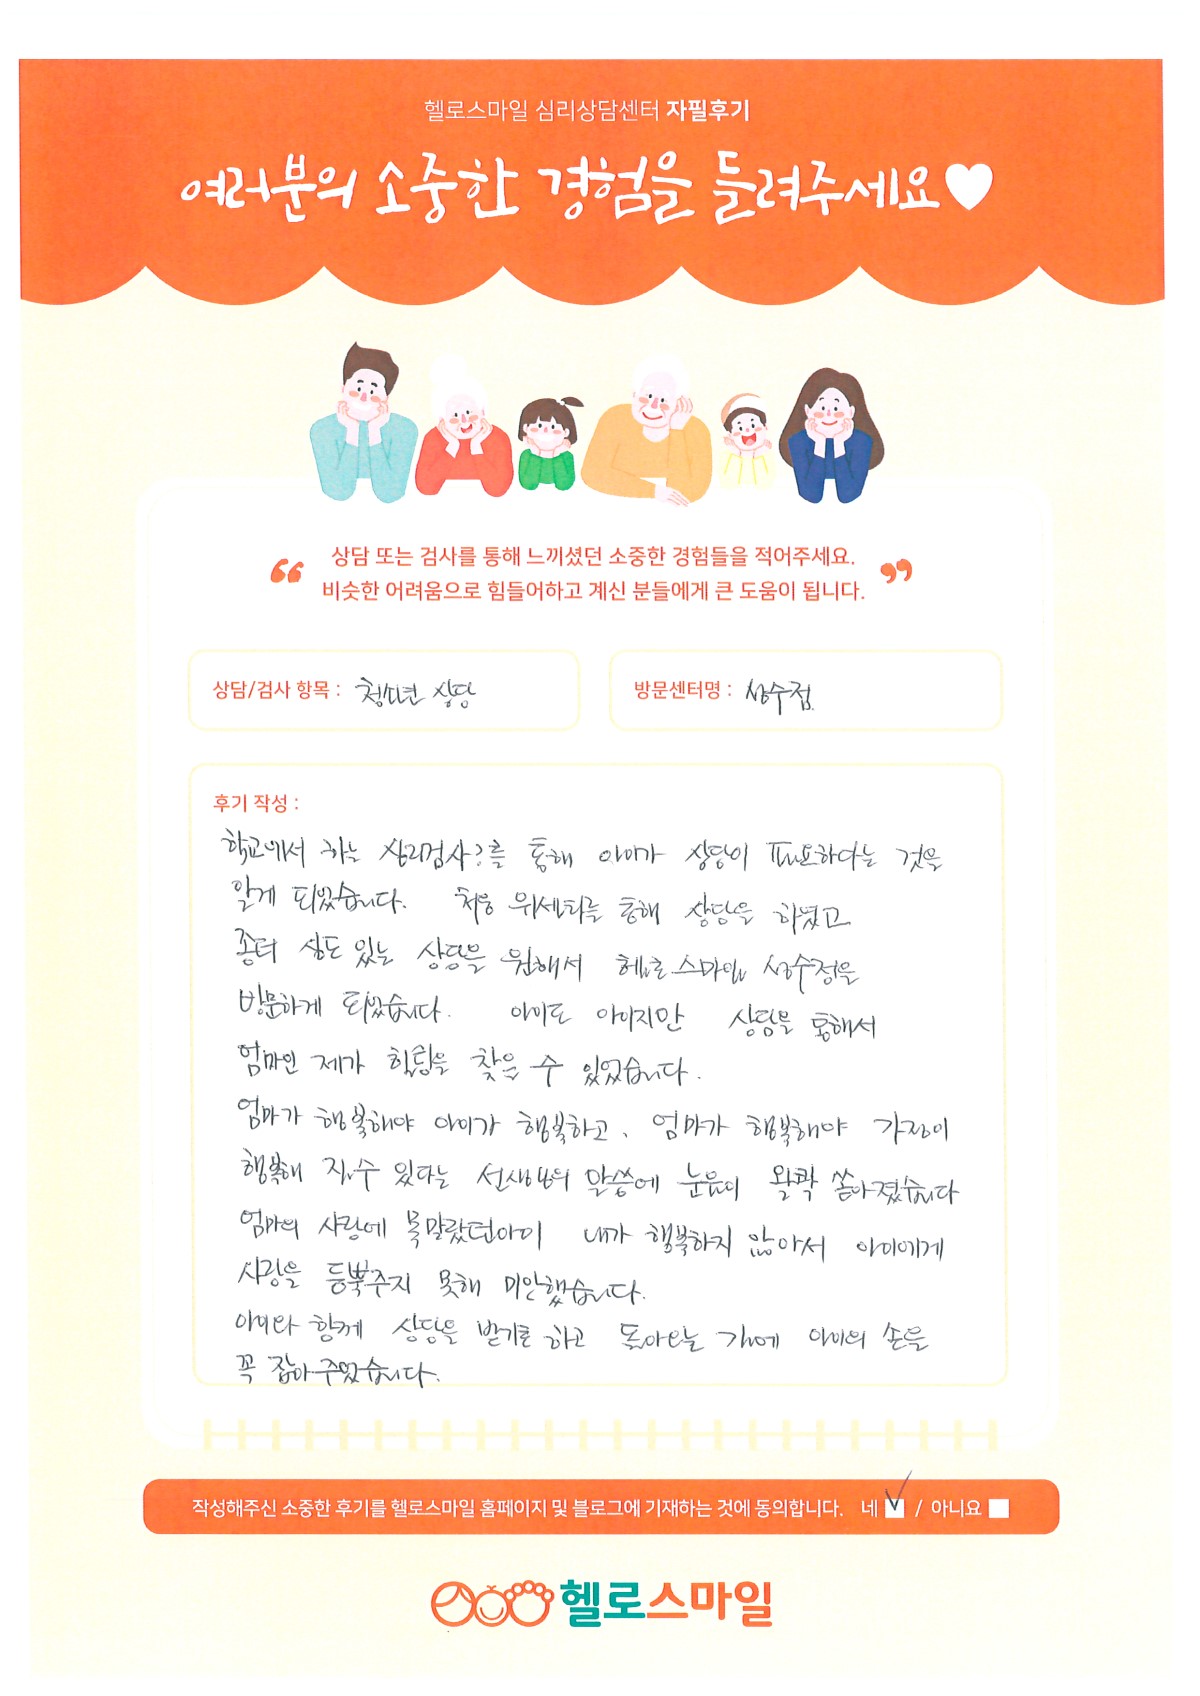 헬로스마일 심리상담센터 자필후기
여러분의 소중한 경험을 들려주세요
상담 또는 검사를 통해 느끼셨던 소중한 경험들을 적어주세요.
비슷한 어려움으로 힘들어하고 계신 분들에게 큰 도움이 됩니다.
상담/검사 항목 : 청소년 상담
방문센터명 : 성수점
후기 작성 :
학교에서 하는 심리검사를 통해 아이가 상담이 필요하다는 것을
알게 되었습니다. 처음 위센터를 통해 상담을 하였고
좀더 심도 있는 상담을 원해서 헬로스마일 성수점을
방문하게 되었습니다. 아이도 아이지만 상담을 통해서
엄마인 제가 힐링을 찾을 수 있었습니다.
엄마가 행복해야 아이가 행복하고, 엄마가 행복해야 가정이
행복해 질수 있다는 선생님의 말씀에 눈물이 왈콱 쏟아졌습니다
엄마의 사랑에 목말랐던아이 내가 행복하지 않아서 아이에게
사랑을 듬뿍주지 못해 미안했습니다.
아이와 함께 상담을 받기로 하고 돌아오는 길에 아이의 손을
꼭 잡아 주었습니다.
작성해주신 소중한 후기를 헬로스마일 홈페이지 및 블로그에 기재하는 것에 동의합니다. 네 / 아니요
헬로스마일